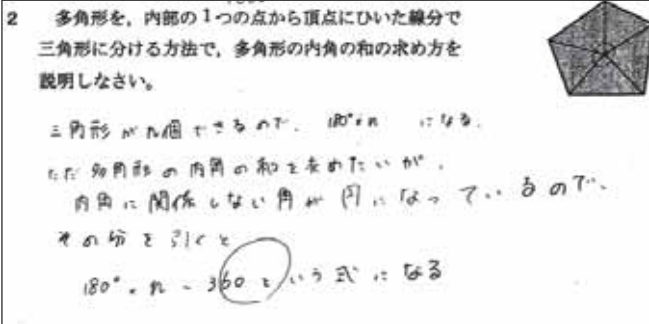 2 多角形を，内部の1つの点から頂点にひいた線分で
三角形に分ける方法で，多角形の内角の和の求め方を
説明しなさい。
三角形がn個できるので、180°×n になる。
ただ多角形の内角の和を求めたいが、
内角に関係しない角が円になっているので、
その分を引くと
180°×n－360という式になる